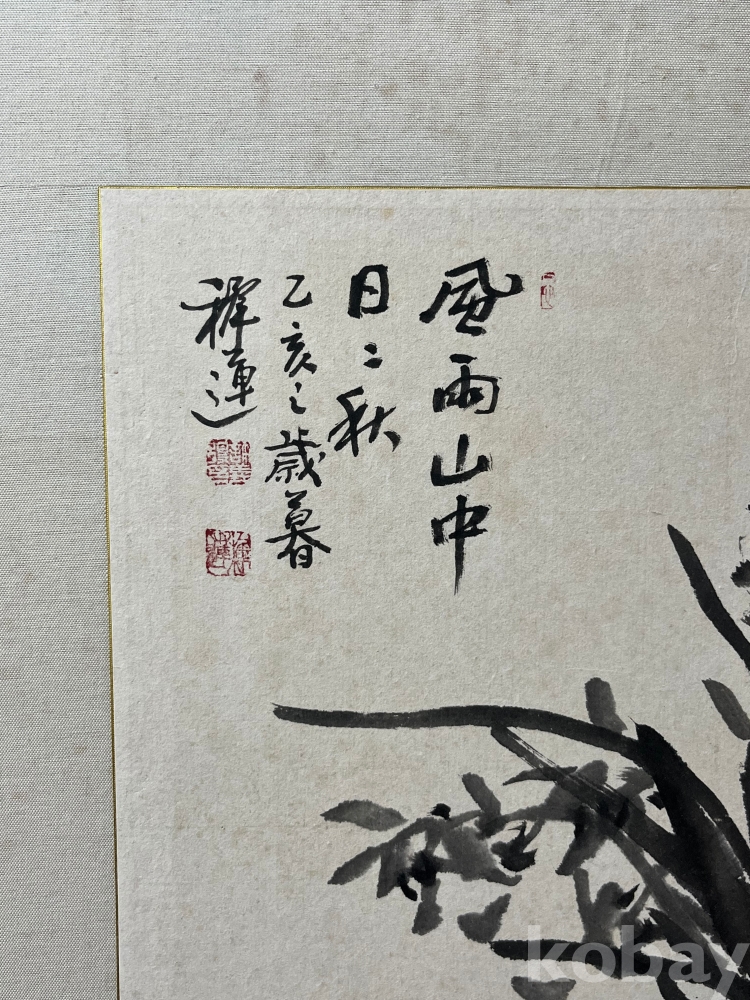 風雨山中
日〻秋
乙亥之歲暮
穉蓮
kobay